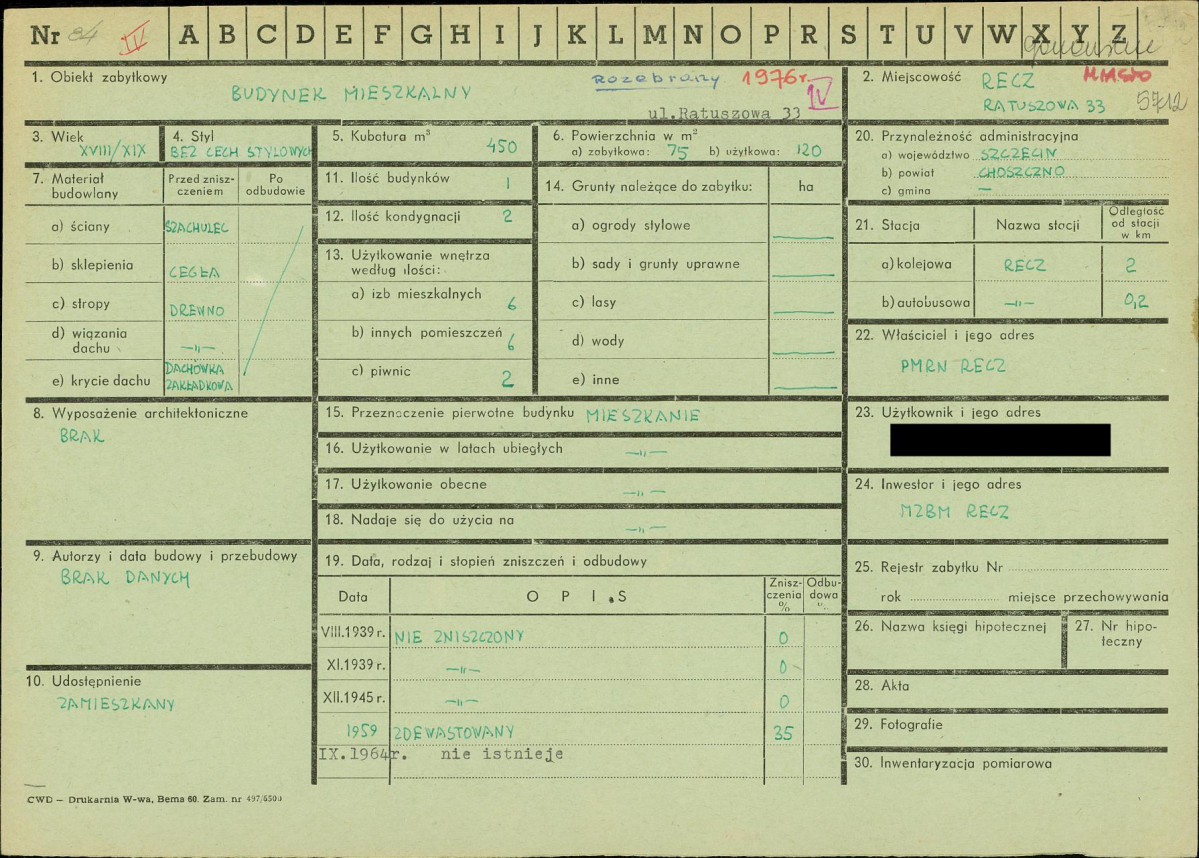 Nr 84 IV A B C D E F G H I J K L M N O P R S T U V W X Y Z
1. Obiekt zabytkowy
Rozebrany 1976 r.
IV
BUDYNEK MIESZKALNY
ul.Ratuszowa 33
2. Miejscowość RECZ MIASTO
RATUSZOWA 33 5712
3. Wiek
XVIII/XIX
4. Styl
BEZ CECH STYLOWYCH
5. Kubatura m³
450
6. Powierzchnia w m²
a) zabytkowa: 75 b) użytkowa: 120
20. Przynależność administracyjna
a) województwo SZCZECIN
b) powiat CHOSZCZNO
c) gmina —
7. Materiał budowlany
Przed znisz-
czeniem
Po
odbudowie
a) ściany SZACHULEC
b) sklepienia CEGŁA
c) stropy DREWNO
d) wiązania
dachu —„—
e) krycie dachu DACHÓWKA
ZAKŁADKOWA
11. Ilość budynków 1
12. Ilość kondygnacji 2
13. Użytkowanie wnętrza
według ilości:
a) izb mieszkalnych 6
b) innych pomieszczeń 6
c) piwnic 2
14. Grunty należące do zabytku: ha
a) ogrody stylowe —
b) sady i grunty uprawne —
c) lasy —
d) wody —
e) inne —
21. Stacja Nazwa stacji
Odległość
od stacji
w km
a) kolejowa RECZ 2
b) autobusowa —„— 0,2
22. Właściciel i jego adres
PMRN RECZ
8. Wyposażenie architektoniczne
BRAK
15. Przeznaczenie pierwotne budynku MIESZKANIE
16. Użytkowanie w latach ubiegłych —„—
17. Użytkowanie obecne —„—
18. Nadaje się do użycia na —„—
23. Użytkownik i jego adres
24. Inwestor i jego adres
MZBM RECZ
9. Autorzy i data budowy i przebudowy
BRAK DANYCH
19. Data, rodzaj i stopień zniszczeń i odbudowy
Data O P I S
Znisz-
czenia
%
Odbu-
dowa
VIII.1939 r. NIE ZNISZCZONY 0
XI.1939 r. —„— 0
XII.1945 r. —„— 0
1959 ZDEWASTOWANY 35
IX.1964r. nie istnieje
25. Rejestr zabytku Nr
rok miejsce przechowywania
26. Nazwa księgi hipotecznej
27. Nr hipo-
teczny
10. Udostępnienie
ZAMIESZKANY
28. Akta
29. Fotografie
30. Inwentaryzacja pomiarowa
CWD — Drukarnia W-wa, Bema 60. Zam. nr 497/6500